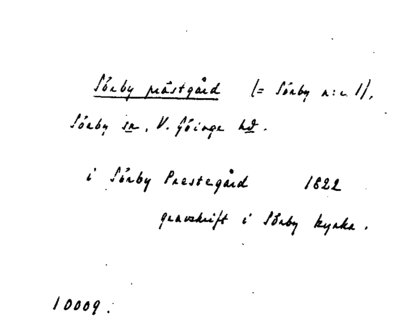 Sörby prästgård (= Sörby n:r 1),
Sörby sn, V. Göinge hd.
i Sörby Prestegård 1822
gravskrift i Sörby kyrka.
10009.